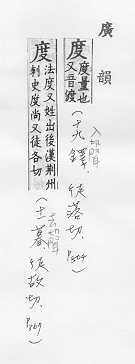 廣韻
度 度量也又音渡
入聲
(十九鐸,徒落切,
度 法度又姓出後漢荆州刺史度尚又徒各切
去聲
(十一暮,徒故切,